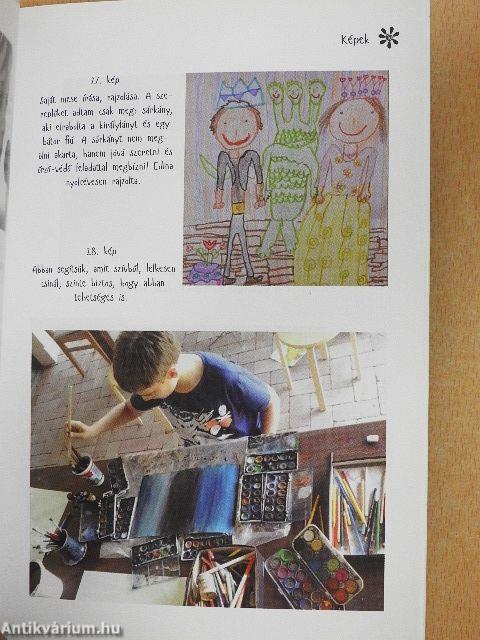 Képek
27. kép
Saját mese írása, rajzolása. A sze-
replőket adtam csak meg: sárkány,
aki elrabolta a királylányt és egy
bátor fiú. A sárkányt nem meg-
ölni akarta, hanem jóvá szeretni és
őrző-védő feladattal megbízni! Edina
nyolcévesen rajzolta.
28. kép
Abban segítsük, amit szívből, lelkesen
csinál, szinte biztos, hogy abban
tehetséges is.
Antikvárium.hu